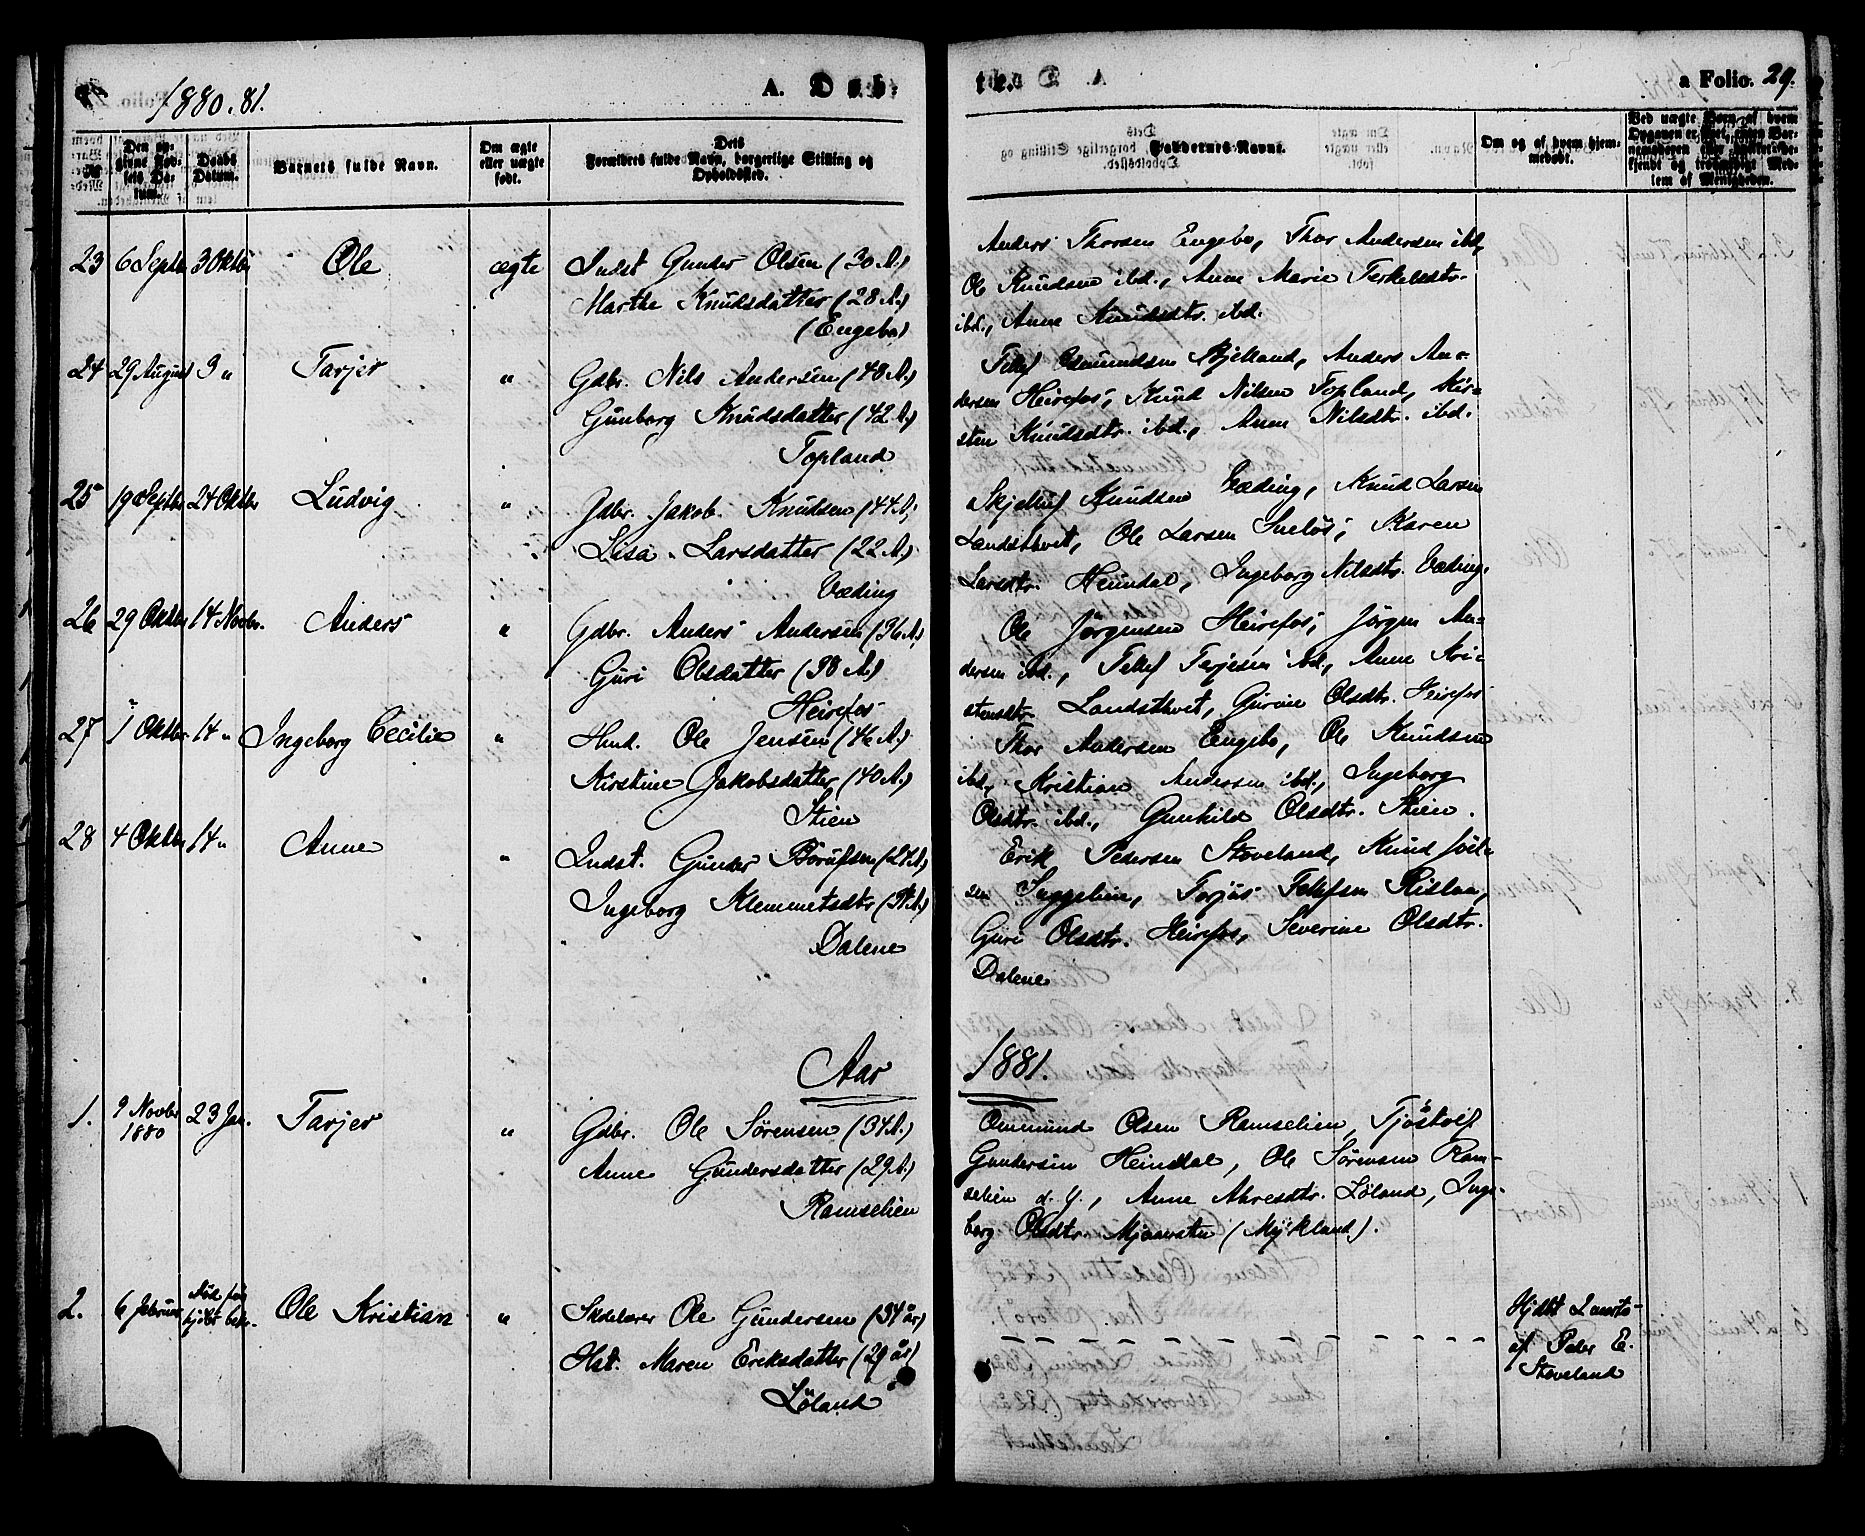 1880.81.
A. Døb-
te.
a Folio. 29.
No.
Den opgivne Fødsels Datum.
Daabs Datum.
Barnets fulde Navn.
Om ægte eller uægte født.
Dets Forældres fulde Navn, borgerlige Stilling og Opholdssted.
Faddernes Navne.
Om og af hvem hjemmedøbt.
23 6 Septbr 3 Oktbr Ole ægte Indst Gunder Olsen (30 A.)
Marthe Knudsdatter (28 A.)
(Engebo)
Anders Thorsen Engebo, Thor Andersen ibd,
Ole Knudsen ibd., Anne Marie Terkelsdtr.
ibd., Anne Knudsdtr. ibd.
24 29 August 3 " Tarjer " Gdbr. Nils Andersen (48 A.)
Gunborg Knudsdatter (42 A.)
Topland
Tellef Osmundsen Mjelland, Anders An-
dersen Heirefos, Knud Nilsen Topland, Kir-
sten Knudsdtr. ibd., Anne Nilsdtr. ibd.
25 19 Septbr 24 Oktbr Ludvig " Gdbr. Jakob Knudsen (44 A.)
Lisa Larsdatter (22 A.)
Væding
Skjelluf Knudsen Væding, Knud Larsen
Landsthvet, Ole Larsen Snelös, Karen
Larsdtr. Heimdal, Ingeborg Nilsdtr. Væding.
26 29 Oktbr 14 Novbr. Anders " Gdbr. Anders Andersen (36 A.)
Guri Olsdatter (38 A.)
Heirefos
Ole Jørgensen Heirefos, Jörgen An-
dersen ibd., Tellef Terjesen ibd., Anne Kri-
stensdtr. Landsthvet, Gurine Olsdtr. Heirefos
27 1 Oktbr 14 " Ingeborg Cecilie " Hmd. Ole Jensen (46 A.)
Kirstine Jakobsdatter (40 A.)
Stien
Thor Andersen Engebo, Ole Knudsen
ibd., Kristian Andersen ibd., Ingeborg
Olsdtr. ibd., Gunhild Olsdtr. Stien.
28 4 Oktbr 14 " Anne " Indst. Gunder
Ingeborg Klemmetsdtr
Dalene
Erik Pedersen Stoveland, Knud Joel-
sen Inggelien, Torjus Tellefsen Rislaa,
Guri Olsdtr. Heirefos, Severine Olsdtr.
Dalene
Aar 1881.
1. 9 Novbr 1880 23 Jan. Tarjer " Gdbr. Ole Sørensen (34 A.)
Anne Gundersdatter (29 A.)
Ramselien
Ommund Olsen Ramselien, Tjöstolf
Gundersen Heimdal, Ole Sørensen Ram-
selien d. y., Anne Ahresdtr. Löland, Inge-
borg Olsdtr. Mjaavatn (Mykland).
2. 6 Februar Ole Kristian " Skolelærer Ole Gundersen (34 år)
Hst. Maren Eriksdatter (29 år)
Löland
Hjdbt
af Peder E.
Stoveland